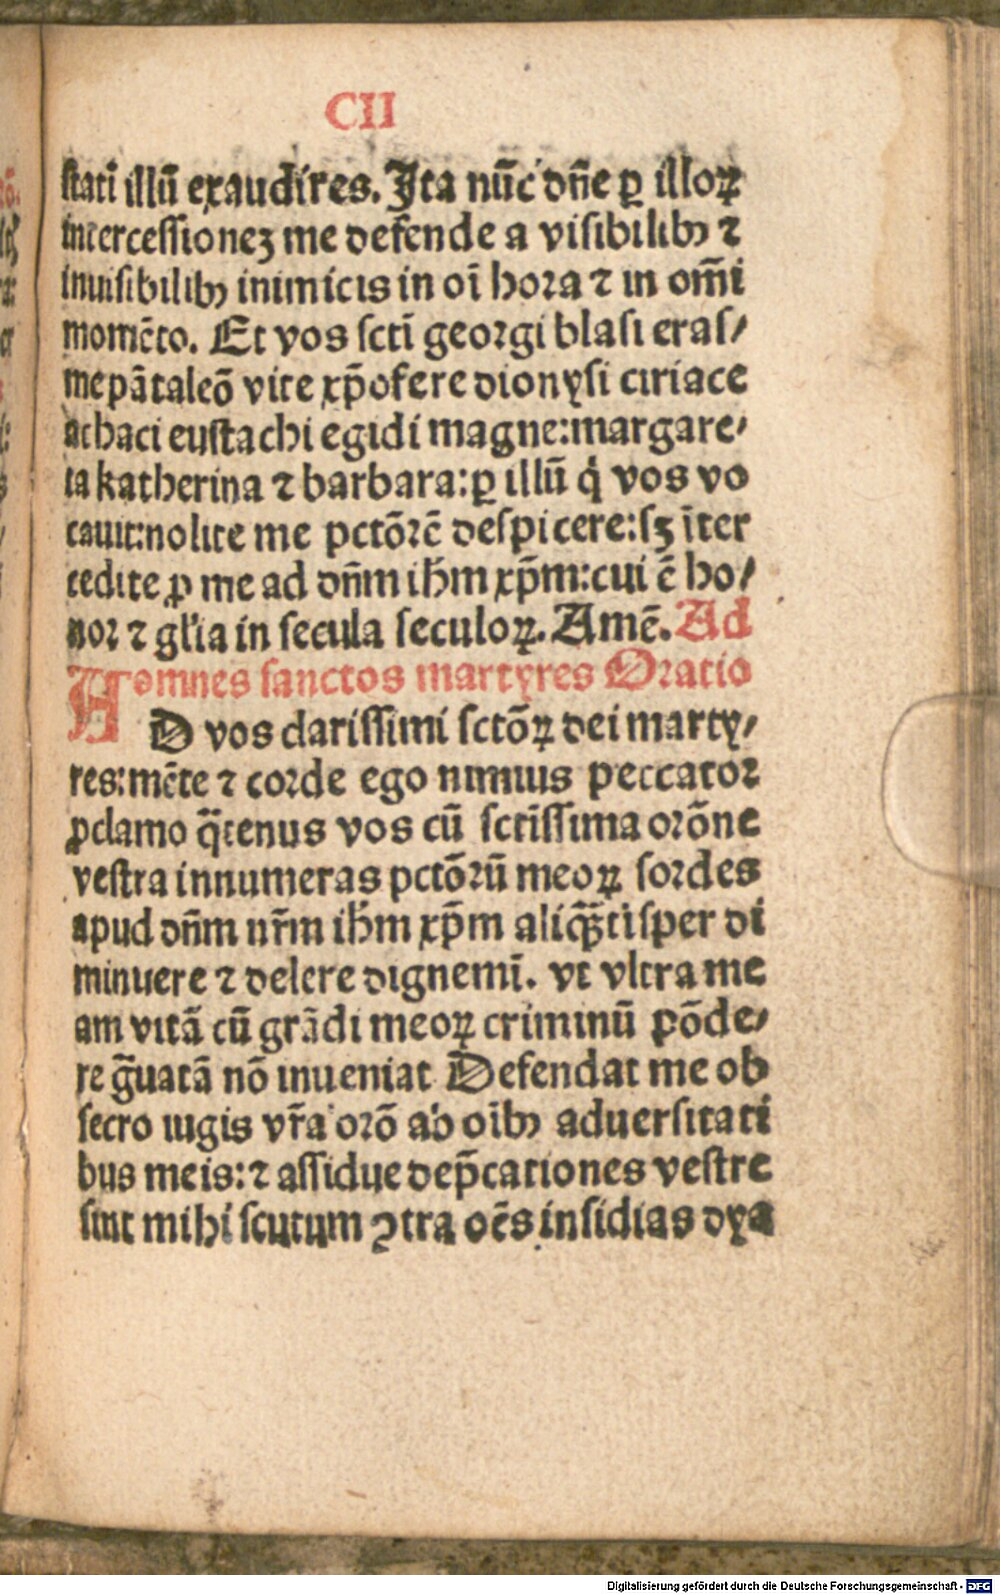 CII
stati illū exaudires. Ita nūc dn̄e ꝑ illoꝝ
intercessionez me defende a visibilibꝰ ⁊
inuisibilibꝰ inimicis in oī hora ⁊ in om̄i
momēto. Et vos sctī georgi blasi eras/
me pātaleō vite xp̄ofere dionysi ciriace
achaci eustachi egidi magne:margare/
ta katherina ⁊ barbara:ꝑ illū q̇ vos vo
cauit:nolite me pctōrē despicere:sꝫ īter
cedite ꝓ me ad dn̄m ih̄m xp̄m:cui ē ho/
nor ⁊ gl'ia in secula seculoꝝ. Amē. Ad
omnes sanctos martyres Oratio
AD vos clarissimi sctōꝝ dei marty/
res:mēte ⁊ corde ego nimius peccator
ꝓclamo q̄tenus vos cū sctīssima orōne
vestra innumeras pctōrū meoꝝ sordes
apud dn̄m nr̄m ih̄m xp̄m aliq̄tisper di
minuere ⁊ delere dignemī. vt vltra me
am vitā cū grādi meoꝝ criminū pōde/
re g̃uatā nō inueniat Defendat me ob
secro iugis vr̄a orō ab oībꝰ aduersitati
bus meis:⁊ assidue dep̄cationes vestre
sint mihi scutum ꝯtra oēs insidias dya
Digitalisierung gefördert durch die Deutsche Forschungsgemeinschaft - DFG